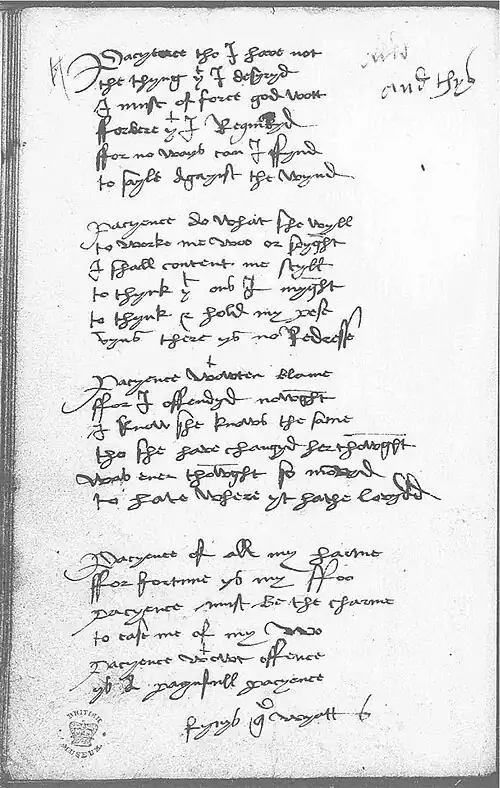 and thys
pacyence tho I have not
the thyng yt I desyryd
I must of force god wott
fforbere yt I Requiryd
ffor no ways can I ffynd
to sayle agaynst the wynd
pacyence do what she wyll
to worke me woo or spyght
I shall content me styll
to thynk yt ons I myght
to thynk & hold my pese
syns there ys no Redresse
pacyence wtowten blame
ffor I offendyd nowght
I know she knows the same
tho she have changyd her thowght
was ever thowght so movyd
to hate where yt hathe lovyd
pacyence of all my harme
ffor fortune ys my ffoo
pacyence must be the charme
to ease me of my wo
pacyence wtowt offence
ys a paynfull pacyence
fynys qd Wyatt s
BRITISH MUSEUM